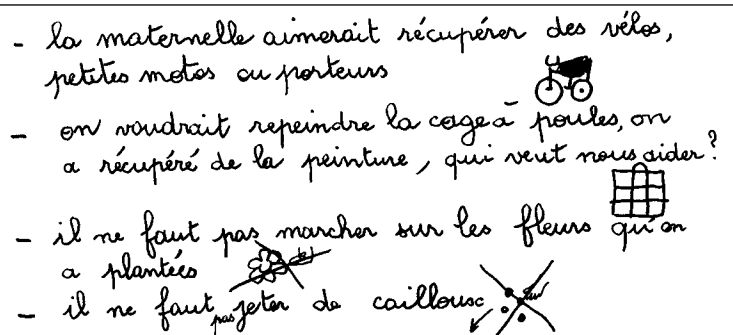 - la maternelle aimerait récupérer des vélos,
petites motos ou porteurs
- on voudrait repeindre la cage à poules, on
a récupéré de la peinture, qui veut nous aider ?
- il ne faut pas marcher sur les fleurs qu'on
a plantées
- il ne faut pas jeter de cailloux